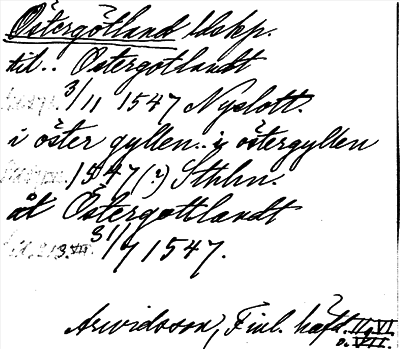 Östergötland ldskp.
til.. Ostergotlandt
3/11 1547 Nyslott.
i öster gyllen.. i östergyllen
1547 (?) Sthlm.
åt Östergottlandt
31/7 1547.
Arwidsson, Finl. häft. II, VI
o. VII.